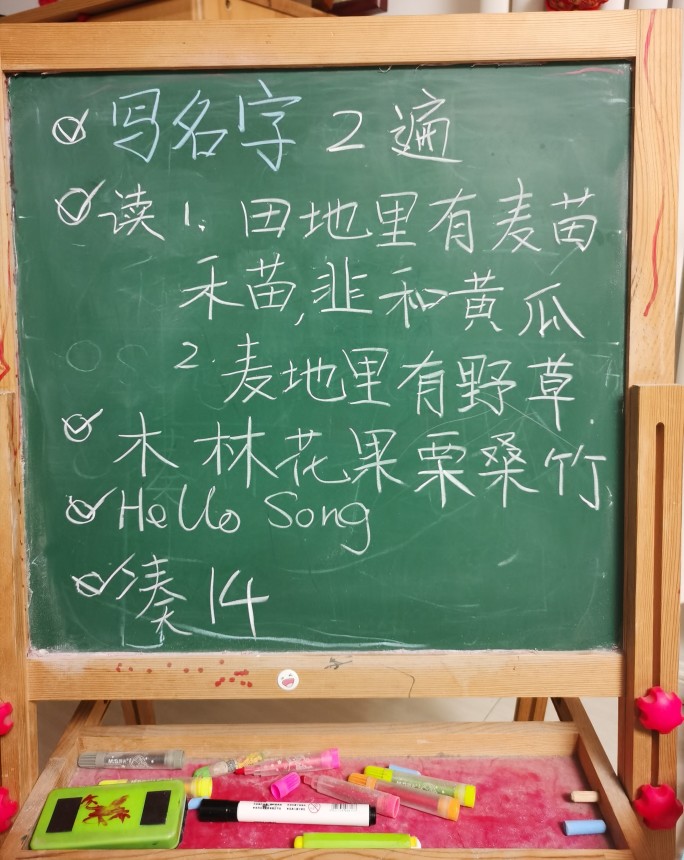 写名字 2 遍
读 1. 田地里有麦苗
禾苗,韭和黄瓜
2. 麦地里有野草.
木林花果栗桑竹
Hello Song
凑 14